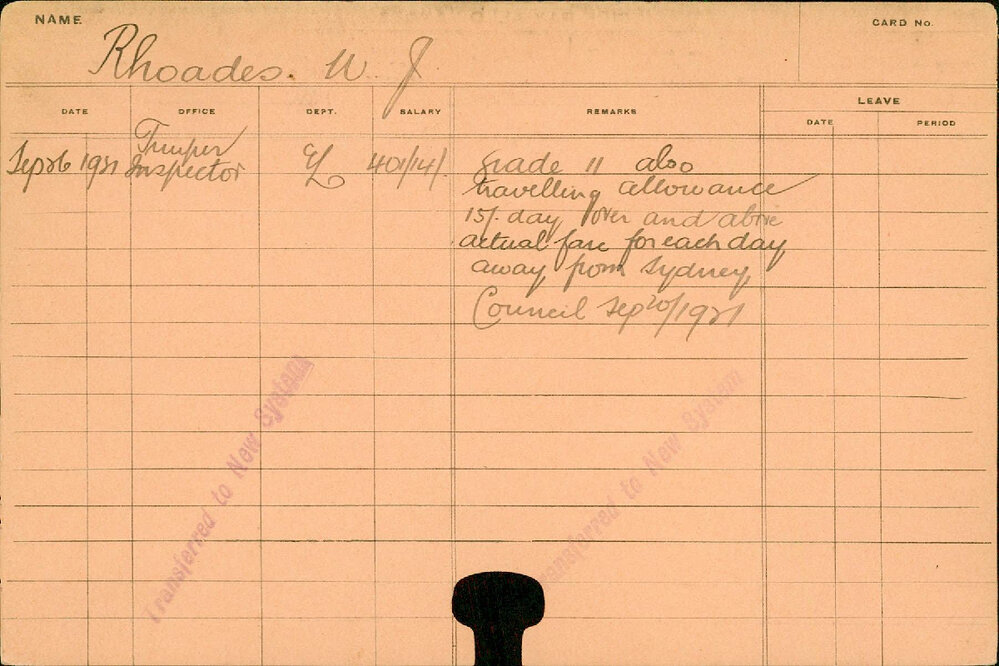 NAME
CARD No.
Rhoades. W. J
DATE OFFICE DEPT. SALARY REMARKS LEAVE
DATE PERIOD
Sep 26 1921 Inspector EL 401/14/. Grade 11 also
travelling allowance
15/. day over and above
actual fare for each day
away from Sydney
Council Sep 20/1921
Transferred to New System
Transferred to New System